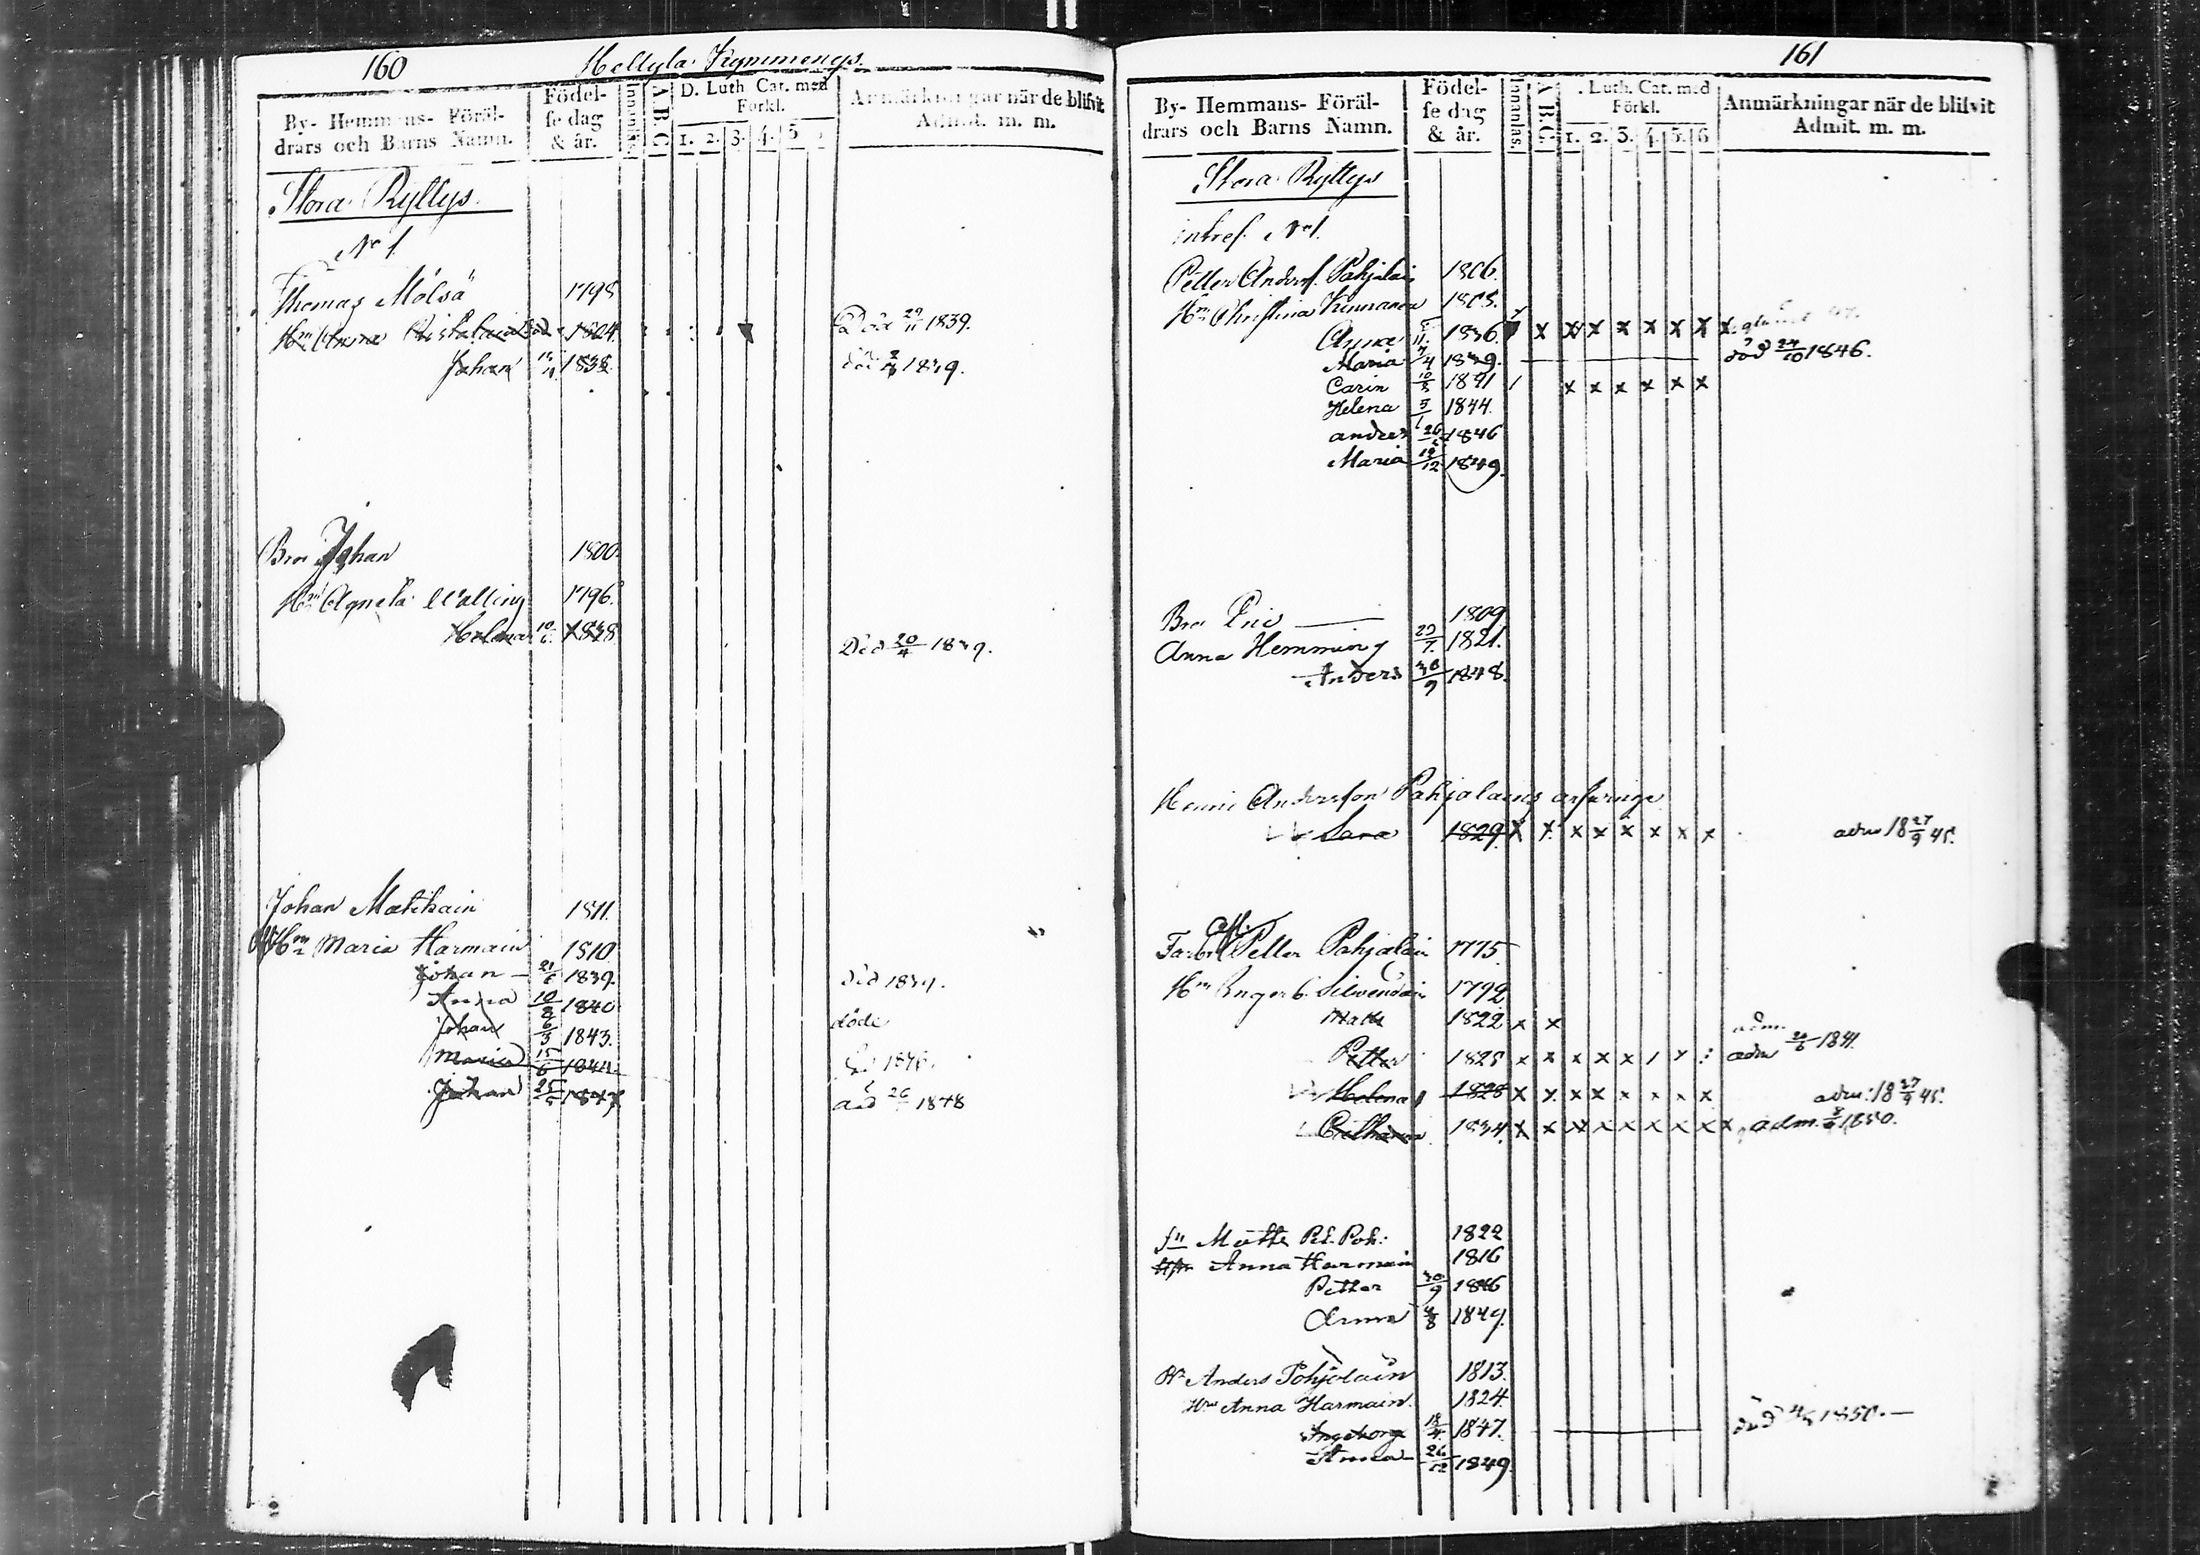 160
Heltyla Kymmenegs.
By- Hemmans- Föräl-
drars och Barns Namn.
Födel-
se dag
& år.
Innanläs.
A.B.C.
D. Luth. Cat. med
Förkl.
1. 2. 3. 4. 5
Anmärkningar när de blifvit
Admit. m. m.
Stora Ryttys.
No 1.
Thomas Mölsä 1798
Hn Anna 1804. Död 29/11 1839.
Johan 1838. 1839.
Bror Johan 1800.
Hn Agneta Walling 1796.
Helena 10 1838 Död 20/4 1839.
Johan Matikain 1811.
Hn Maria Harmain 1810.
Johan 21/6 1839. död 1839.
Anna 10/8 1840
Johan 6/3 1843. döde
Maria 15/6 1844
Johan 25/5 1847 död 26 1848
161
By- Hemmans- Föräl-
drars och Barns Namn.
Födel-
se dag
& år.
Innanläs.
A.B.C.
. Luth. Cat. med
Förkl.
1. 2. 3. 4. 5. 6
Anmärkningar när de blifvit
Admit. m. m.
Stora Ryttys
intres. No 1.
Petter Anders. Pohjalain 1806.
Hn Christina Kinnanen 1805.
Anna 11 1836. x x x x x x x x
Maria 7/4 1839. död 24/10 1846.
Carin 10/8 1841 / x x x x x x
Helena 3/1 1844.
anders 26 1846
Maria 12/12 1849.
Bror Eric — 1809
Anna Hemming 29/7. 1821.
Anders 30/9 1848.
Henric Andersson Pohjalains arfvinge
Sara 1829. x x x x x x x x adm 18 27/9 45.
Farbr Petter Pohjalain 1775
Hn Ingerb. Silvendoin 1792
Matts 1822 x x adm.
Petter 1825 x x x x x / x adm 1841.
Helena 1828 x x x x x x x x adm: 18 27/9 45.
Cathar 1834. x x x x x x x x x adm. 1850.
sn Matts Pet. Poh: 1822
Hn Anna Harmain 1816
Petter 30/9 1846
Anna 4/8 1849.
Anders Pohjolain 1813.
Hn Anna Harmain. 1824.
Ingeborg 18/4. 1847. död 1850.—
Anna 26/12 1849.